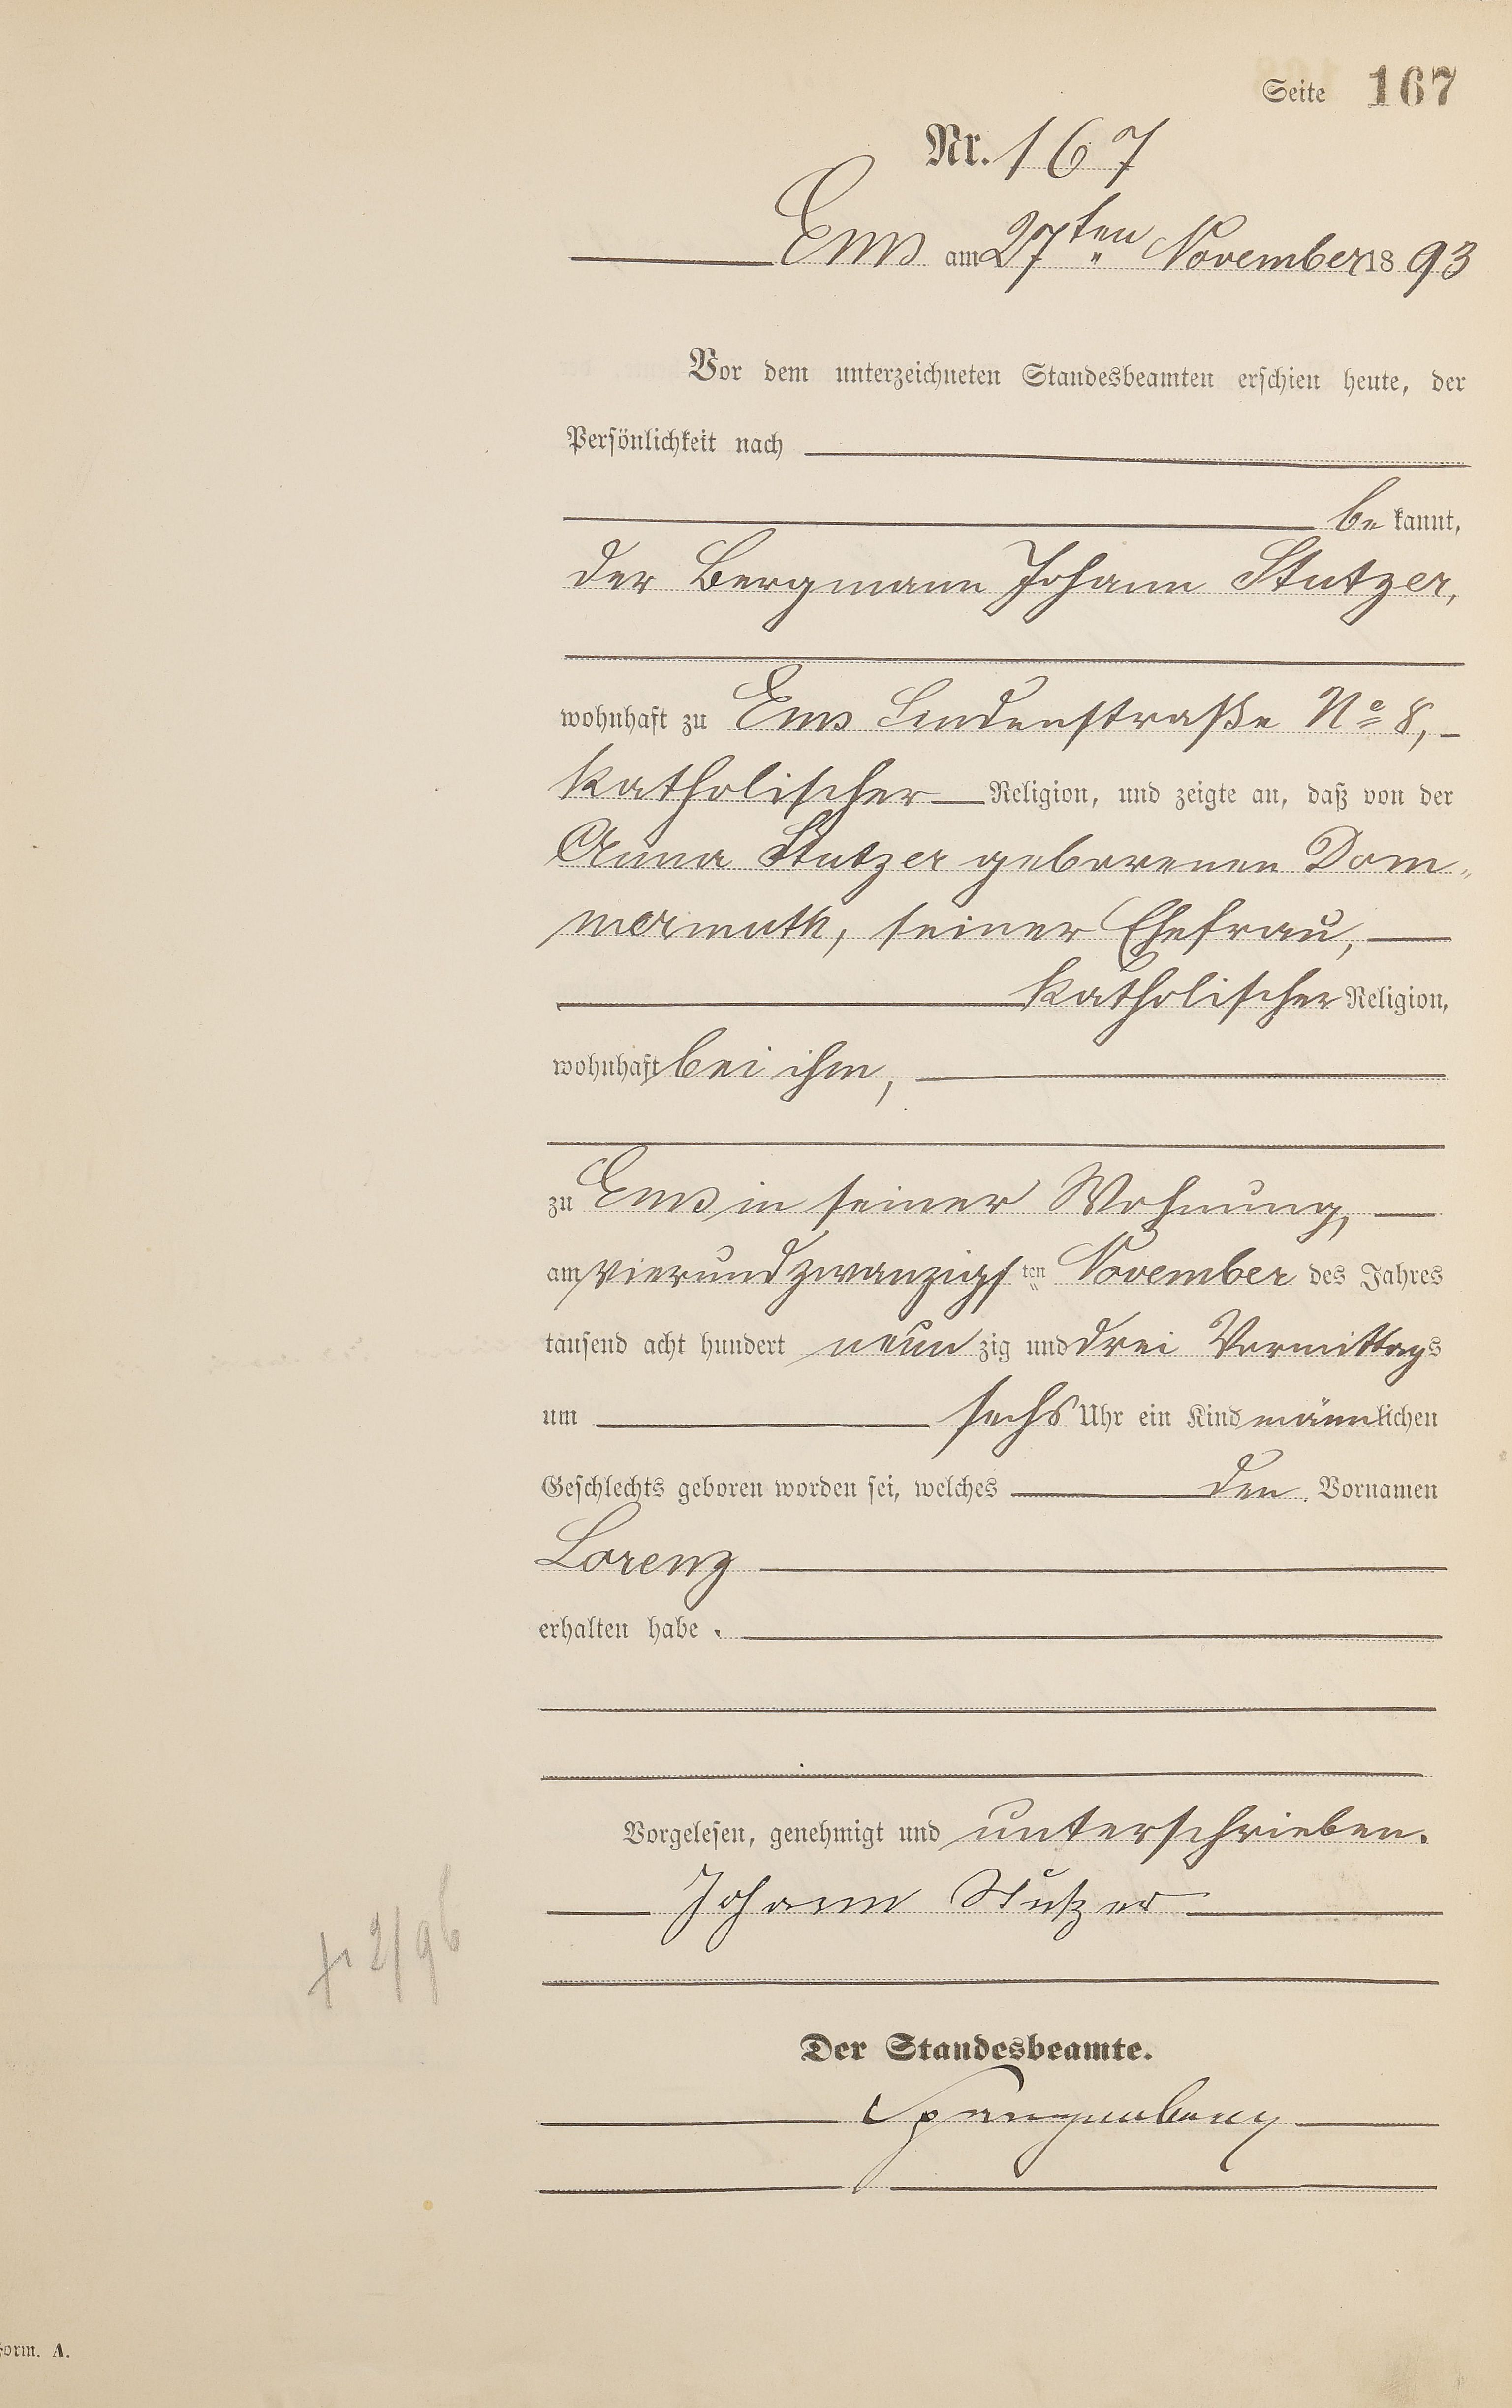 Seite 167
Nr. 167
Ems am 27ten November 1893
Vor dem unterzeichneten Standesbeamten erschien heute, der
Persönlichkeit nach
be kannt,
der Bergmann Johann Stutzer,
wohnhaft zu Ems Lindenstraße No 8,
katholischer Religion, und zeigte an, daß von der
Anna Stutzer geborenen Dom-
mermuth, seiner Ehefrau,
katholischer Religion,
wohnhaft bei ihm,
zu Ems in seiner Wohnung,
am vierundzwanzigsten November des Jahres
tausend acht hundert neunzig und drei Vormittags
um sechs Uhr ein Kind männlichen
Geschlechts geboren worden sei, welches den Vornamen
Lorenz
erhalten habe.
Vorgelesen, genehmigt und unterschrieben.
Johann Stutzer
2/96
Der Standesbeamte.
Spangenberg
Form. A.